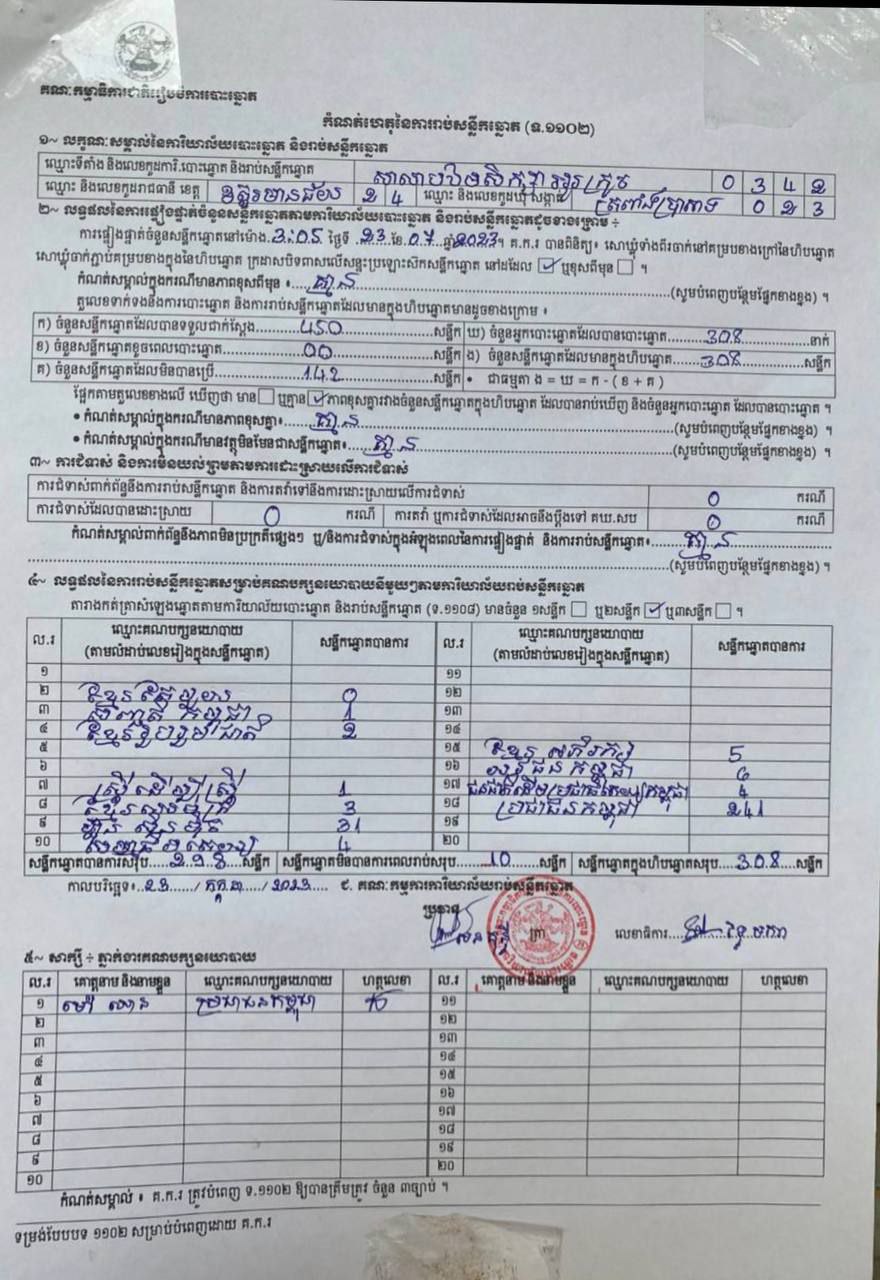 គណៈកម្មាធិការជាតិរៀបចំការបោះឆ្នោត
កំណត់ហេតុនៃការរាប់សន្លឹកឆ្នោត (ទ.១១០២)
១~ លក្ខណៈសម្គាល់នៃការិយាល័យបោះឆ្នោត និងរាប់សន្លឹកឆ្នោត
ឈ្មោះទីតាំង និងលេខកូដការិ.បោះឆ្នោត និងរាប់សន្លឹកឆ្នោត 0 3 4 2
ឈ្មោះ និងលេខកូដរាជធានី ខេត្ត ឧត្តរមានជ័យ 2 4 ឈ្មោះ និងលេខកូដឃុំ សង្កាត់ ត្រពាំងប្រាសាទ 0 2 3
២~ លទ្ធផលនៃការផ្ទៀងផ្ទាត់ចំនួនសន្លឹកឆ្នោតតាមការិយាល័យបោះឆ្នោត និងរាប់សន្លឹកឆ្នោតដូចខាងក្រោម ÷
ការផ្ទៀងផ្ទាត់ចំនួនសន្លឹកឆ្នោតនៅម៉ោង 3:05 ថ្ងៃទី 23 ខែ 07 ឆ្នាំ 2023។ គ.ក.រ បានពិនិត្យ៖ សោឃ្មុំទាំងពីរចាក់នៅគម្របខាងក្រៅនៃហិបឆ្នោត
សោឃ្មុំចាក់ភ្ជាប់គម្របខាងក្នុងនៃហិបឆ្នោត ក្រដាសបិទពាសលើសន្ទះប្រឡោះសិកសន្លឹកឆ្នោត នៅដដែល ☑ ឬខុសពីមុន ☐ ។
កំណត់សម្គាល់ក្នុងករណីមានភាពខុសពីមុន ៖ គ្មាន (សូមបំពេញបន្ថែមផ្នែកខាងខ្នង) ។
តួលេខទាក់ទងនឹងការបោះឆ្នោត និងការរាប់សន្លឹកឆ្នោតដែលមានក្នុងហិបឆ្នោតមានដូចខាងក្រោម ៖
ក) ចំនួនសន្លឹកឆ្នោតដែលបានទទួលជាក់ស្តែង 450 សន្លឹក ឃ) ចំនួនអ្នកបោះឆ្នោតដែលបានបោះឆ្នោត 308 នាក់
ខ) ចំនួនសន្លឹកឆ្នោតខូចពេលបោះឆ្នោត 00 សន្លឹក ង) ចំនួនសន្លឹកឆ្នោតដែលមានក្នុងហិបឆ្នោត 308 សន្លឹក
គ) ចំនួនសន្លឹកឆ្នោតដែលមិនបានប្រើ 142 សន្លឹក • ជាធម្មតា ង = ឃ = ក - ( ខ + គ )
ផ្អែកតាមតួលេខខាងលើ ឃើញថា មាន ☐ ឬគ្មាន ☑ ភាពខុសគ្នារវាងចំនួនសន្លឹកឆ្នោតក្នុងហិបឆ្នោត ដែលបានរាប់ឃើញ និងចំនួនអ្នកបោះឆ្នោត ដែលបានបោះឆ្នោត ។
• កំណត់សម្គាល់ក្នុងករណីមានភាពខុសគ្នា៖ គ្មាន (សូមបំពេញបន្ថែមផ្នែកខាងខ្នង) ។
• កំណត់សម្គាល់ក្នុងករណីមានវត្ថុមិនមែនជាសន្លឹកឆ្នោត៖ គ្មាន (សូមបំពេញបន្ថែមផ្នែកខាងខ្នង) ។
៣~ ការជំទាស់ និងការមិនយល់ព្រមតាមការដោះស្រាយលើការជំទាស់
ការជំទាស់ពាក់ព័ន្ធនឹងការរាប់សន្លឹកឆ្នោត និងការតវ៉ាទៅនឹងការដោះស្រាយលើការជំទាស់ 0 ករណី
ការជំទាស់ដែលបានដោះស្រាយ 0 ករណី ការតវ៉ា ឬការជំទាស់ដែលអាចនឹងប្តឹងទៅ គឃ.សប 0 ករណី
កំណត់សម្គាល់ពាក់ព័ន្ធនឹងភាពមិនប្រក្រតីផ្សេងៗ ឬ/និងការជំទាស់ក្នុងអំឡុងពេលនៃការផ្ទៀងផ្ទាត់ និងការរាប់សន្លឹកឆ្នោត៖ គ្មាន
(សូមបំពេញបន្ថែមផ្នែកខាងខ្នង) ។
៤~ លទ្ធផលនៃការរាប់សន្លឹកឆ្នោតសម្រាប់គណបក្សនយោបាយនីមួយៗតាមការិយាល័យរាប់សន្លឹកឆ្នោត
តារាងកត់ត្រាសំឡេងឆ្នោតតាមការិយាល័យបោះឆ្នោត និងរាប់សន្លឹកឆ្នោត (ទ.១១០៨) មានចំនួន ១សន្លឹក ☐ ឬ២សន្លឹក ☑ ឬ៣សន្លឹក ☐ ។
ល.រ ឈ្មោះគណបក្សនយោបាយ (តាមលំដាប់លេខរៀងក្នុងសន្លឹកឆ្នោត) សន្លឹកឆ្នោតបានការ ល.រ ឈ្មោះគណបក្សនយោបាយ (តាមលំដាប់លេខរៀងក្នុងសន្លឹកឆ្នោត) សន្លឹកឆ្នោតបានការ
១ ១១
២ 0 ១២
៣ 1 ១៣
៤ ខ្មែររួបរួមជាតិ 2 ១៤
៥ ១៥ ខ្មែរអភិរក្ស 5
៦ ១៦ យុវជនកម្ពុជា 6
៧ ស្ត្រីដើម្បីស្ត្រី 1 ១៧ ជនជាតិដើមប្រជាធិបតេយ្យកម្ពុជា 4
៨ 3 ១៨ ប្រជាជនកម្ពុជា 241
៩ ហ៊្វុនស៊ិនប៉ិច 31 ១៩
១០ 4 ២០
សន្លឹកឆ្នោតបានការសរុប 298 សន្លឹក សន្លឹកឆ្នោតមិនបានការពេលរាប់សរុប 10 សន្លឹក សន្លឹកឆ្នោតក្នុងហិបឆ្នោតសរុប 308 សន្លឹក
កាលបរិច្ឆេទ៖ 23 / កក្កដា / 2023 ជ. គណៈកម្មការការិយាល័យរាប់សន្លឹកឆ្នោត
ប្រធាន ត្រា លេខាធិការ
៥~ សាក្សី ÷ ភ្នាក់ងារគណបក្សនយោបាយ
ល.រ គោត្តនាម និងនាមខ្លួន ឈ្មោះគណបក្សនយោបាយ ហត្ថលេខា ល.រ គោត្តនាម និងនាមខ្លួន ឈ្មោះគណបក្សនយោបាយ ហត្ថលេខា
១ ប្រជាជនកម្ពុជា ១១
២ ១២
៣ ១៣
៤ ១៤
៥ ១៥
៦ ១៦
៧ ១៧
៨ ១៨
៩ ១៩
១០ ២០
កំណត់សម្គាល់ ៖ គ.ក.រ ត្រូវបំពេញ ទ.១១០២ ឱ្យបានត្រឹមត្រូវ ចំនួន ៣ច្បាប់ ។
ទម្រង់បែបបទ ១១០២ សម្រាប់បំពេញដោយ គ.ក.រ